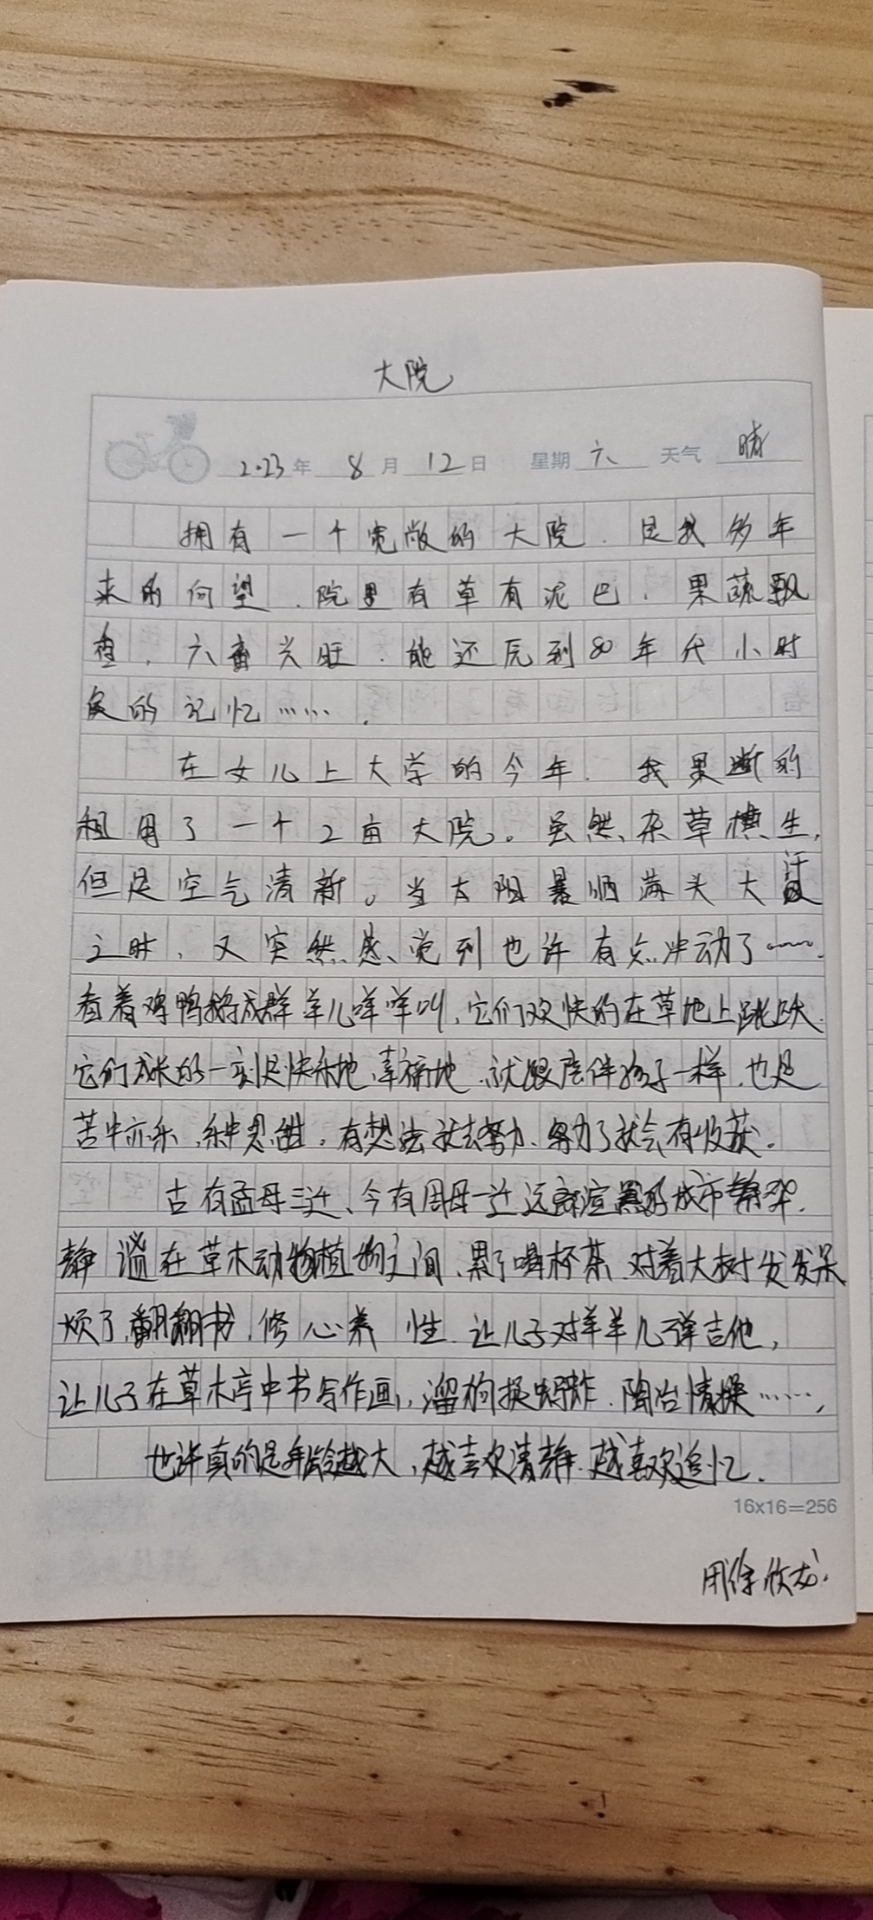 大院
2023年 8月12日 星期六 天气 晴
拥有一个宽敞的大院.是我多年
来的向望.院里有草有泥巴,果蔬飘
香,六畜兴旺.能还原到80年代小时
候的记忆…….
在女儿上大学的今年.我果断的
租用了一个2亩大院。虽然杂草横生,
但是空气清新。当太阳暴晒满头大汗
之时,又突然感觉到也许有点冲动了……
看着鸡鸭鹅成群羊儿咩咩叫,它们欢快的在草地上跳跃.
它们成长的一刻是快乐地,幸福地.就跟陪伴孩子一样.也是
苦中亦乐,有想法就去努力、努力了就会有收获。
古有孟母三迁、今有周母一迁远离渲嚣的城市繁华.
静谧在草木动物植物之间.累了喝杯茶.对着大树发发呆
烦了翻翻书,修心养性.让儿子对羊羊儿弹吉他,
让儿子在草木亭中书写作画,溜狗摸蚂蚱.陶冶情操……,
也许真的是年龄越大,越喜欢清静.越喜欢追忆.
16x16=256